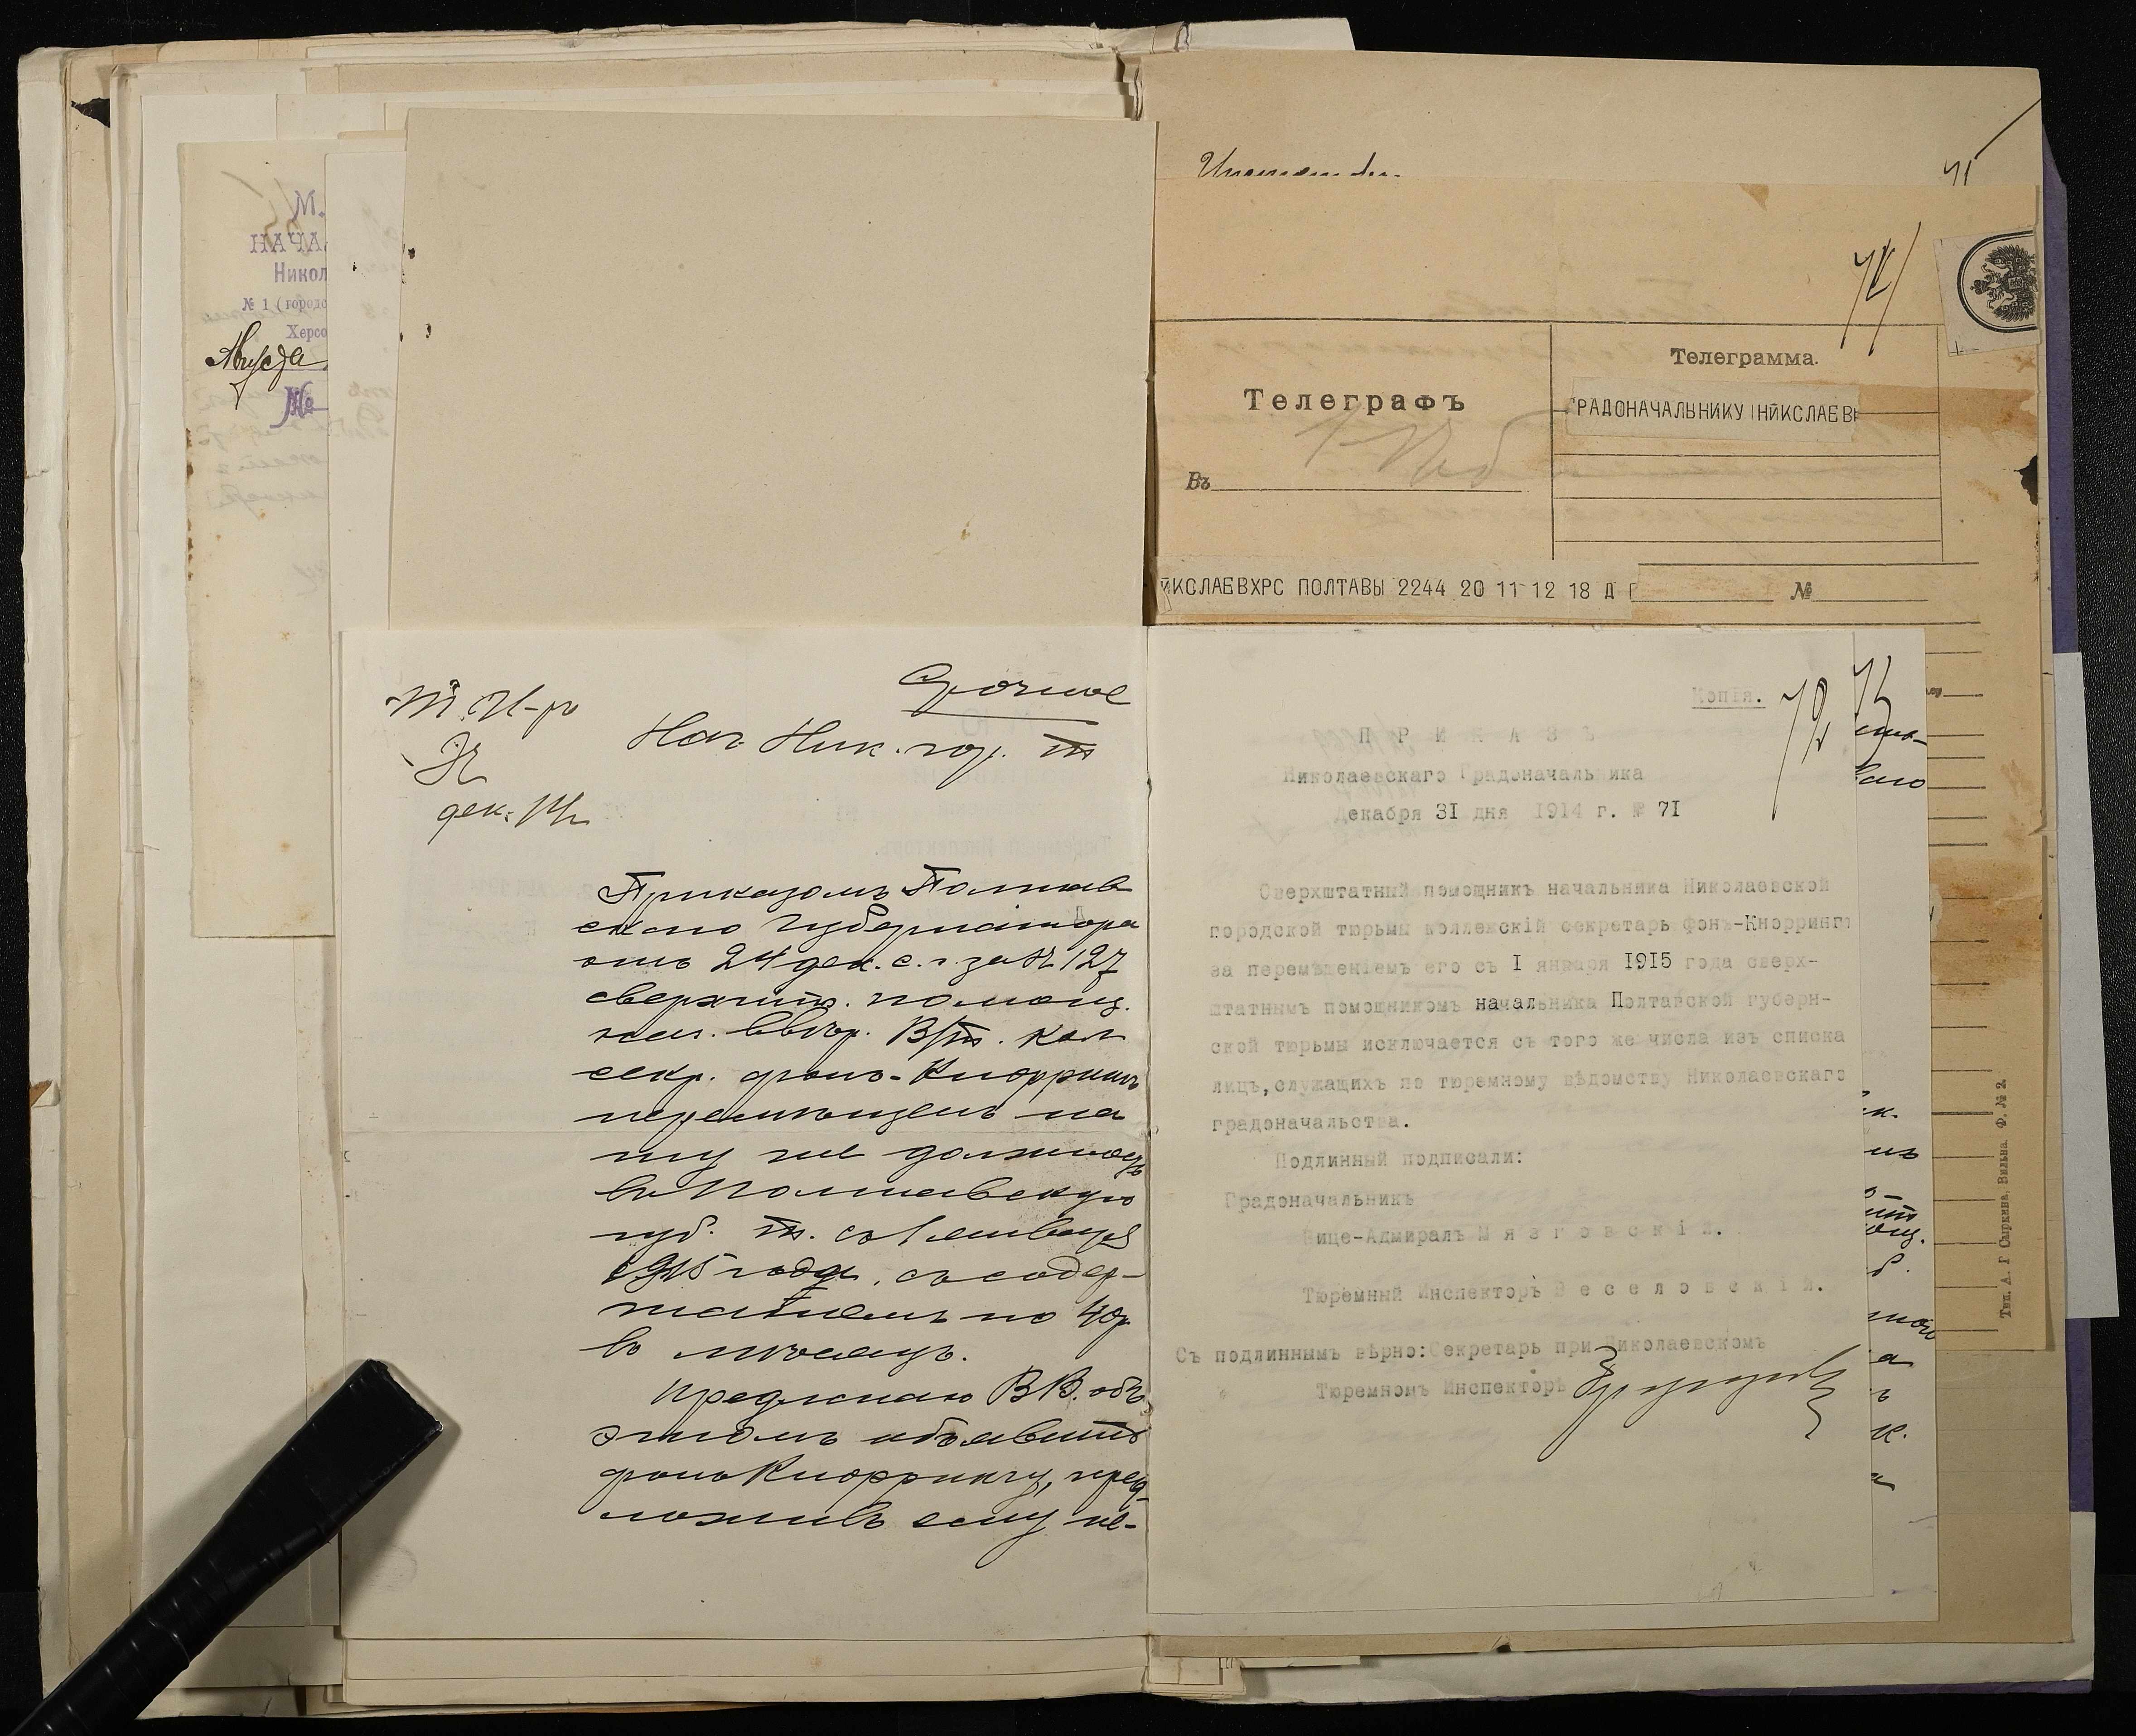 М.
НАЧА
Никол
№ 1 (городс
Херсо
Августа
№
71
Телеграфъ
Въ
Телеграмма.
РАДОНАЧАЛЬНИКУ НИКСЛАЕВ
ИКСЛАЕВХРС ПОЛТАВЫ 2244 20 11 12 18 Д
№
Тип. А. Г Сыркина, Вильна. Ф. № 2.
Т. И-ръ
дек. 14 г.
Срочное
Нач. Ник. гор. т
Приказомъ Полтав
скаго Губернатора
отъ 24 дек. с. г. за № 127
сверхшт. помощ.
нач. ввѣр. В/т. кол
секр. фонъ-Кноррингъ
перемѣщенъ на
ту же должность
въ Полтавскую
губ. т. съ 1 января
1915 года, съ содер-
жаніемъ по 40 р
въ мѣсяцъ.
Предлагаю ВВ. объ
этомъ объявить
фонъ Кноррингу, пред-
ложивъ ему не-
Копія.
72
П Р И К А З Ъ
Николаевскаго Градоначальника
Декабря 31 дня 1914 г. № 71
Сверхштатный помощникъ начальника Николаевской
городской тюрьмы коллежскій секретарь фон-Кноррингъ
за перемѣщеніемъ его съ 1 января 1915 года сверх-
штатнымъ помощникомъ начальника Полтавской губерн-
ской тюрьмы исключается съ того же числа изъ списка
лицъ, служащихъ по тюремному вѣдомству Николаевскаго
градоначальства.
Подлинный подписали:
Градоначальникъ
Вице-Адмиралъ М я з г о в с к і й.
Тюремный Инспекторъ В е с е л о в с к і й.
Съ подлиннымъ вѣрно: Секретарь при Николаевскомъ
Тюремномъ Инспекторѣ